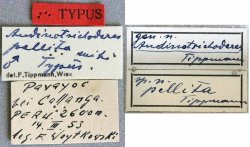 TYPUS
Audinotrichoderes
pellita mihi
♂ Typus.
det. F. Tippmann, Wien
bei Callanga.
PERU. 2600 m.
14. III 53
leg. F. Woytkowski
gen. n.
Audinotrichoderes
Tippmann
sp. n.
pellita
Tippmann